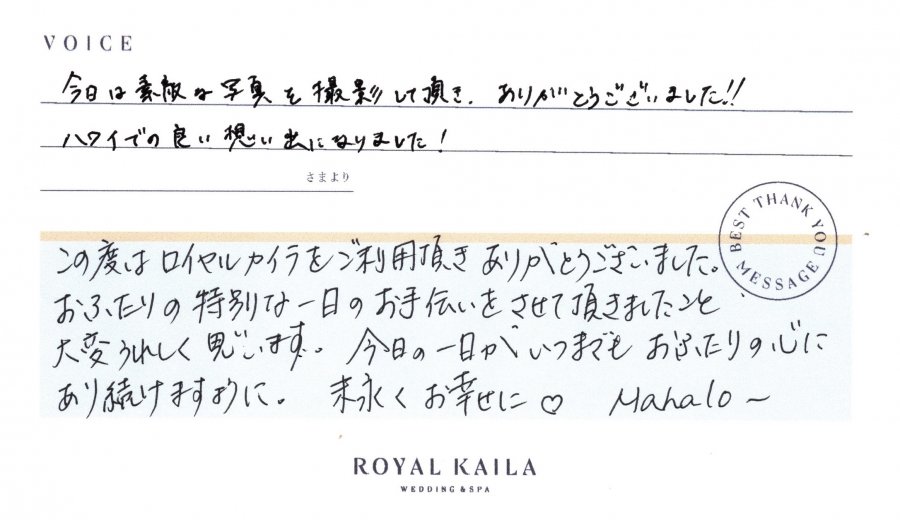 VOICE
今日は素敵な写真を撮影して頂き、ありがとうございました!!
ハワイでの良い想い出になりました!
さまより
BEST THANK YOU MESSAGE
この度はロイヤルカイラをご利用頂きありがとうございました。
おふたりの特別な一日のお手伝いをさせて頂きましたこと
大変うれしく思います。今日の一日がいつまでもおふたりの心に
あり続けますように。末永くお幸せに♡ Mahalo~
ROYAL KAILA
WEDDING & SPA